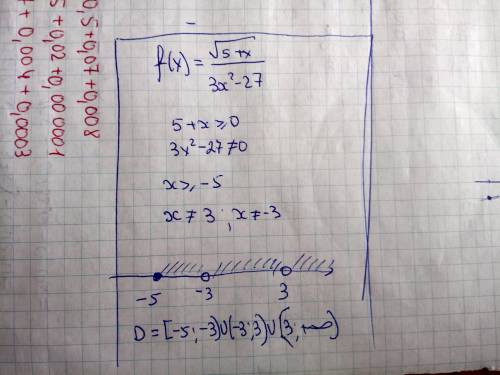 f(x) = √5+x / 3x²-27
5+x ⩾ 0
3x²-27 ≠ 0
x ⩾ -5
x ≠ 3 ; x ≠ -3
-5 -3 3
D = [-5 ; -3) ∪ (-3 ; 3) ∪ (3 ; +∞)
0,5+0,07+0,008
5+0,02+0,000001
+0,004+0,0003